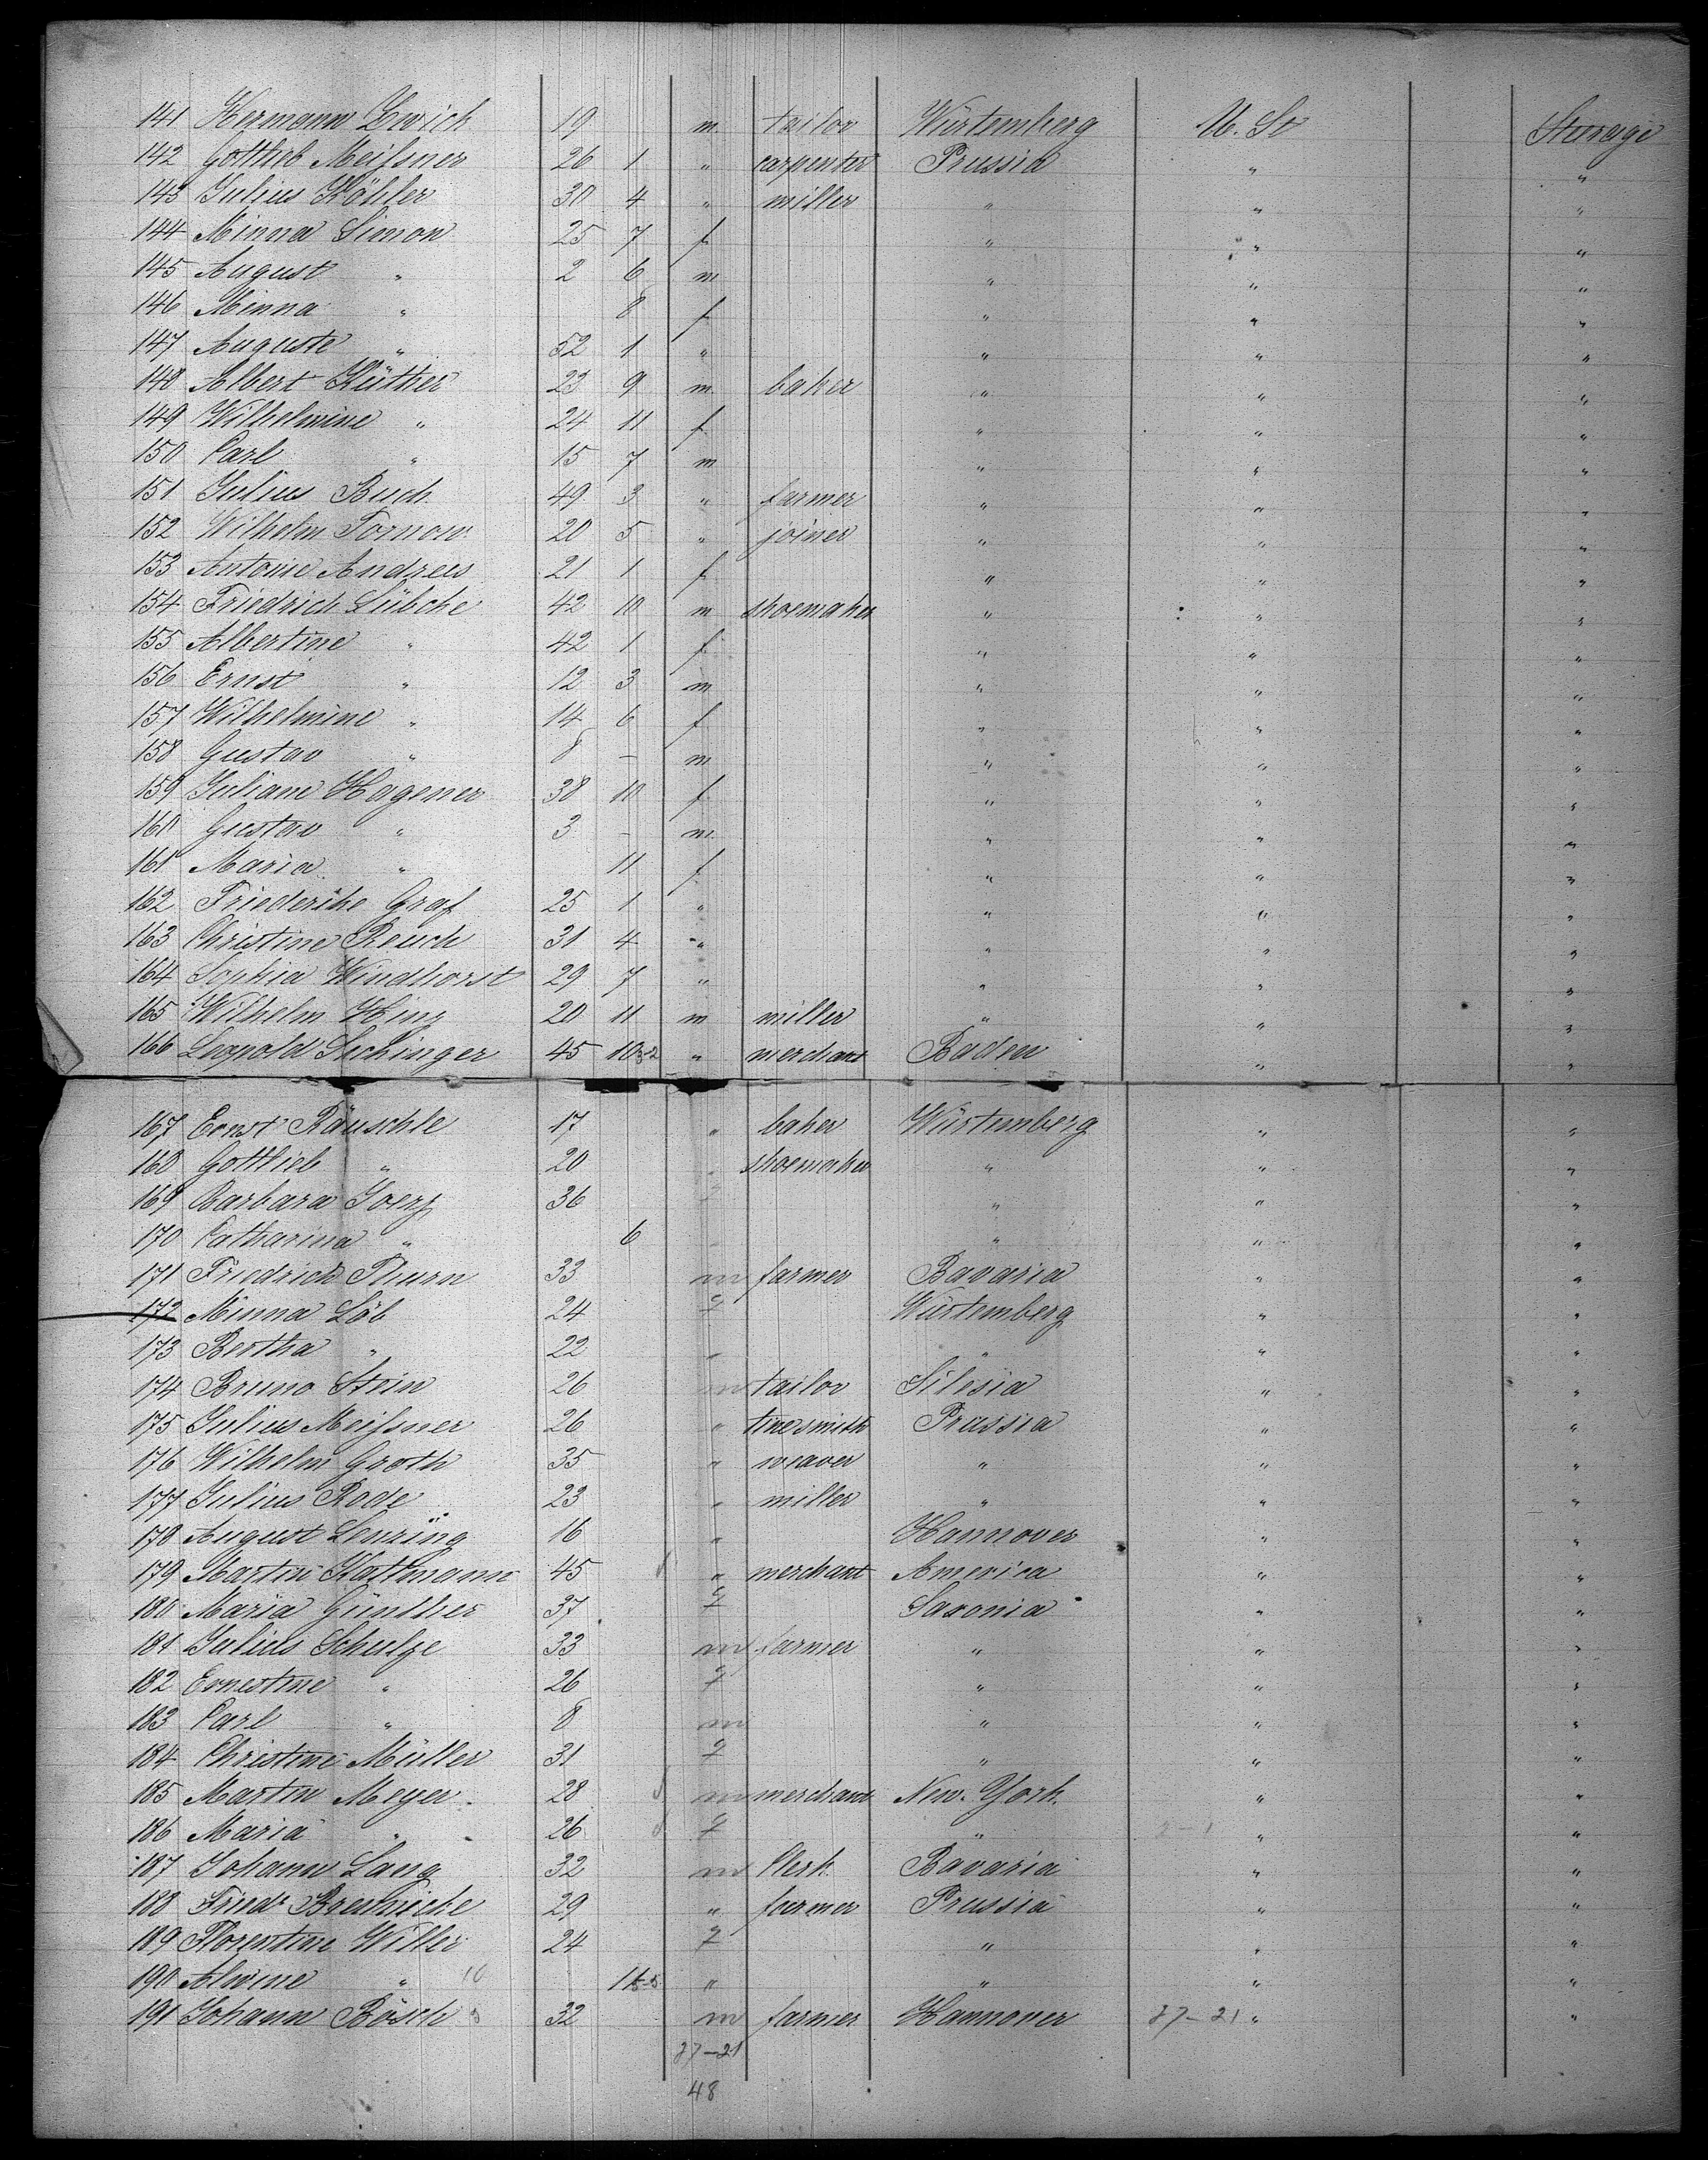 141 Hermann Zwich 19 m. tailor Würtemberg U. St Steerage
142 Gottlieb Meißner 26 1 " carpenter Prussia " "
143 Julius Köhler 30 4 " miller " " "
144 Minna Simon 25 7 f " " "
145 August " 2 6 m " " "
146 Minna " 8 f " " "
147 Auguste " 52 1 " " " "
148 Albert Küther 23 9 m. baker " " "
149 Wilhelmine " 24 11 f " " "
150 Carl " 15 7 m " " "
151 Julius Buch 49 3 " farmer " " "
152 Wilhelm Tornow 20 5 " joiner " " "
153 Antonie Andrees 21 1 f " " "
154 Friedrich Lübcke 42 10 m shoemaker " " "
155 Albertine " 42 1 f " " "
156 Ernst " 12 3 m " " "
157 Wilhelmine " 14 6 f " " "
158 Gustav " 8 – m " " "
159 Juliane Hagener 38 10 f " " "
160 Gustav " 3 – m. " " "
161 Maria " 11 f " " "
162 Friederike Graf 25 1 " " " "
163 Christine Reuch 31 4 " " " "
164 Sophia Windhorst 29 7 " " " "
165 Wilhelm Hinz 20 11 m miller " " "
166 Leopold Seckinger 45 10 " merchant Baden " "
167 Ernst Räuschle 17 " baker Würtemberg " "
168 Gottlieb " 20 " shoemaker " " "
169 Barbara Joerg 36 f " " "
170 Catharina " 6 " " " "
171 Friedrich Thurn 33 m farmer Bavaria " "
172 Minna Löb 24 f Würtemberg " "
173 Bertha " 22 " " " "
174 Bruno Stein 26 m tailor Silesia " "
175 Julius Meißner 26 " tinesmith Prussia " "
176 Wilhelm Groth 35 " weaver " " "
177 Julius Rode 23 " miller " " "
178 August Lenzing 16 " Hannover " "
179 Martin Kattmann 45 " merchant America " "
180 Maria Günther 37 f Saxonia " "
181 Julius Schulze 33 m farmer " " "
182 Ernestine " 26 f " " "
183 Carl " 8 m " " "
184 Christine Müller 31 f " " "
185 Martin Meyer 28 m merchant New-York " "
186 Maria " 26 f " " "
187 Johann Lang 32 m Clerk Bavaria " "
188 Friedr Breunicke 29 " farmer Prussia " "
189 Florentine Willer 24 f " " "
190 Alwine " " " " "
191 Johann Bösch 32 m farmer Hannover 27–21 " "
27–21
48